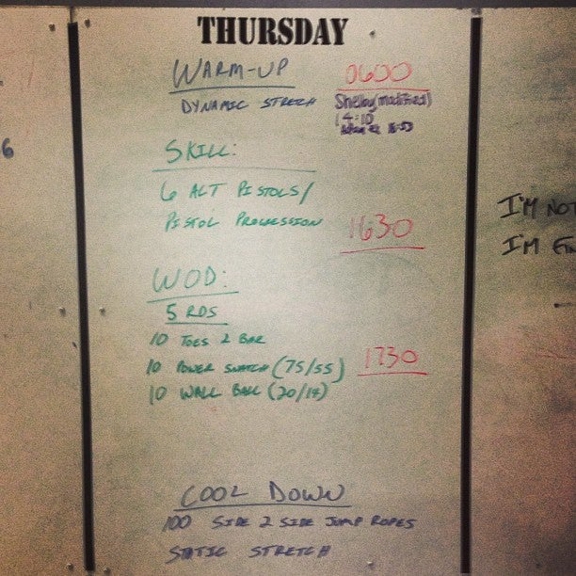 THURSDAY
WARM-UP
DYNAMIC STRETCH
0600
Shelby (modified)
14:10
6
SKILL:
6 ALT PISTOLS/
PISTOL PROGRESSION
1630
I'M NOT
I'M
WOD:
5 RDS
10 TOES 2 BAR
10 POWER SNATCH (75/55)
10 WALL BALL (20/14)
1730
COOL DOWN
100 SIDE 2 SIDE JUMP ROPES
STATIC STRETCH